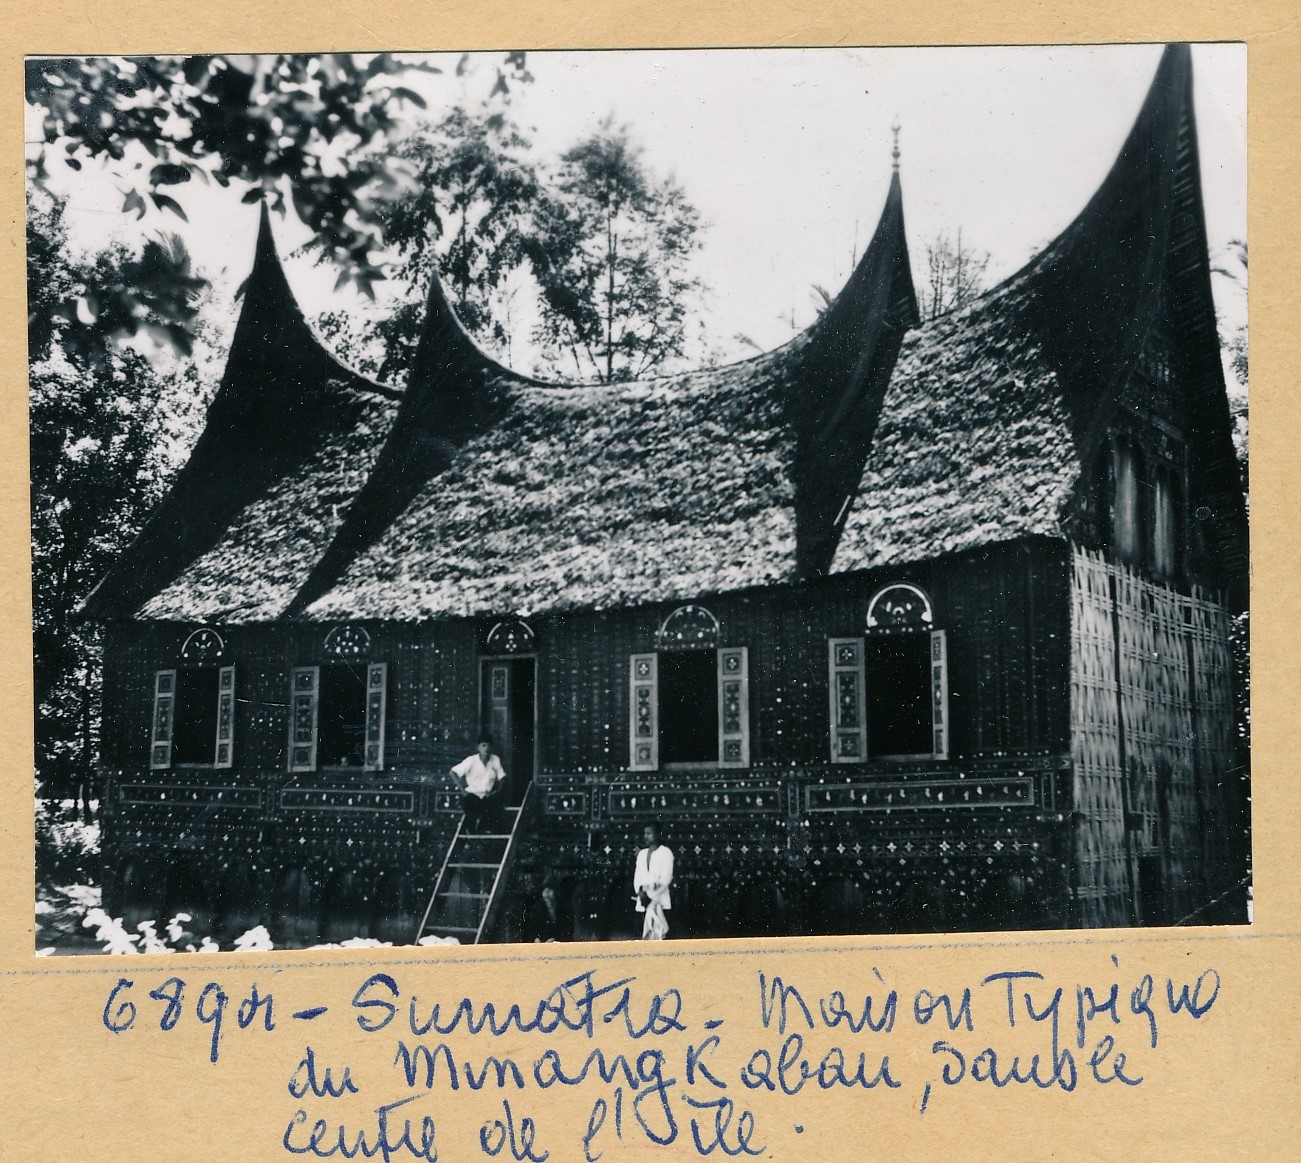 689 - Sumatra - Maison Typique
du Minangkabau, dans le
centre de l'île.